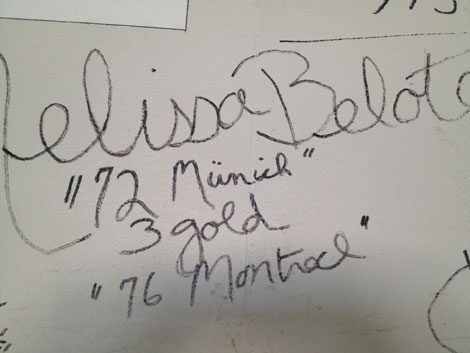 Melissa Belote
"72 Münich"
3 gold
"76 Montreal"